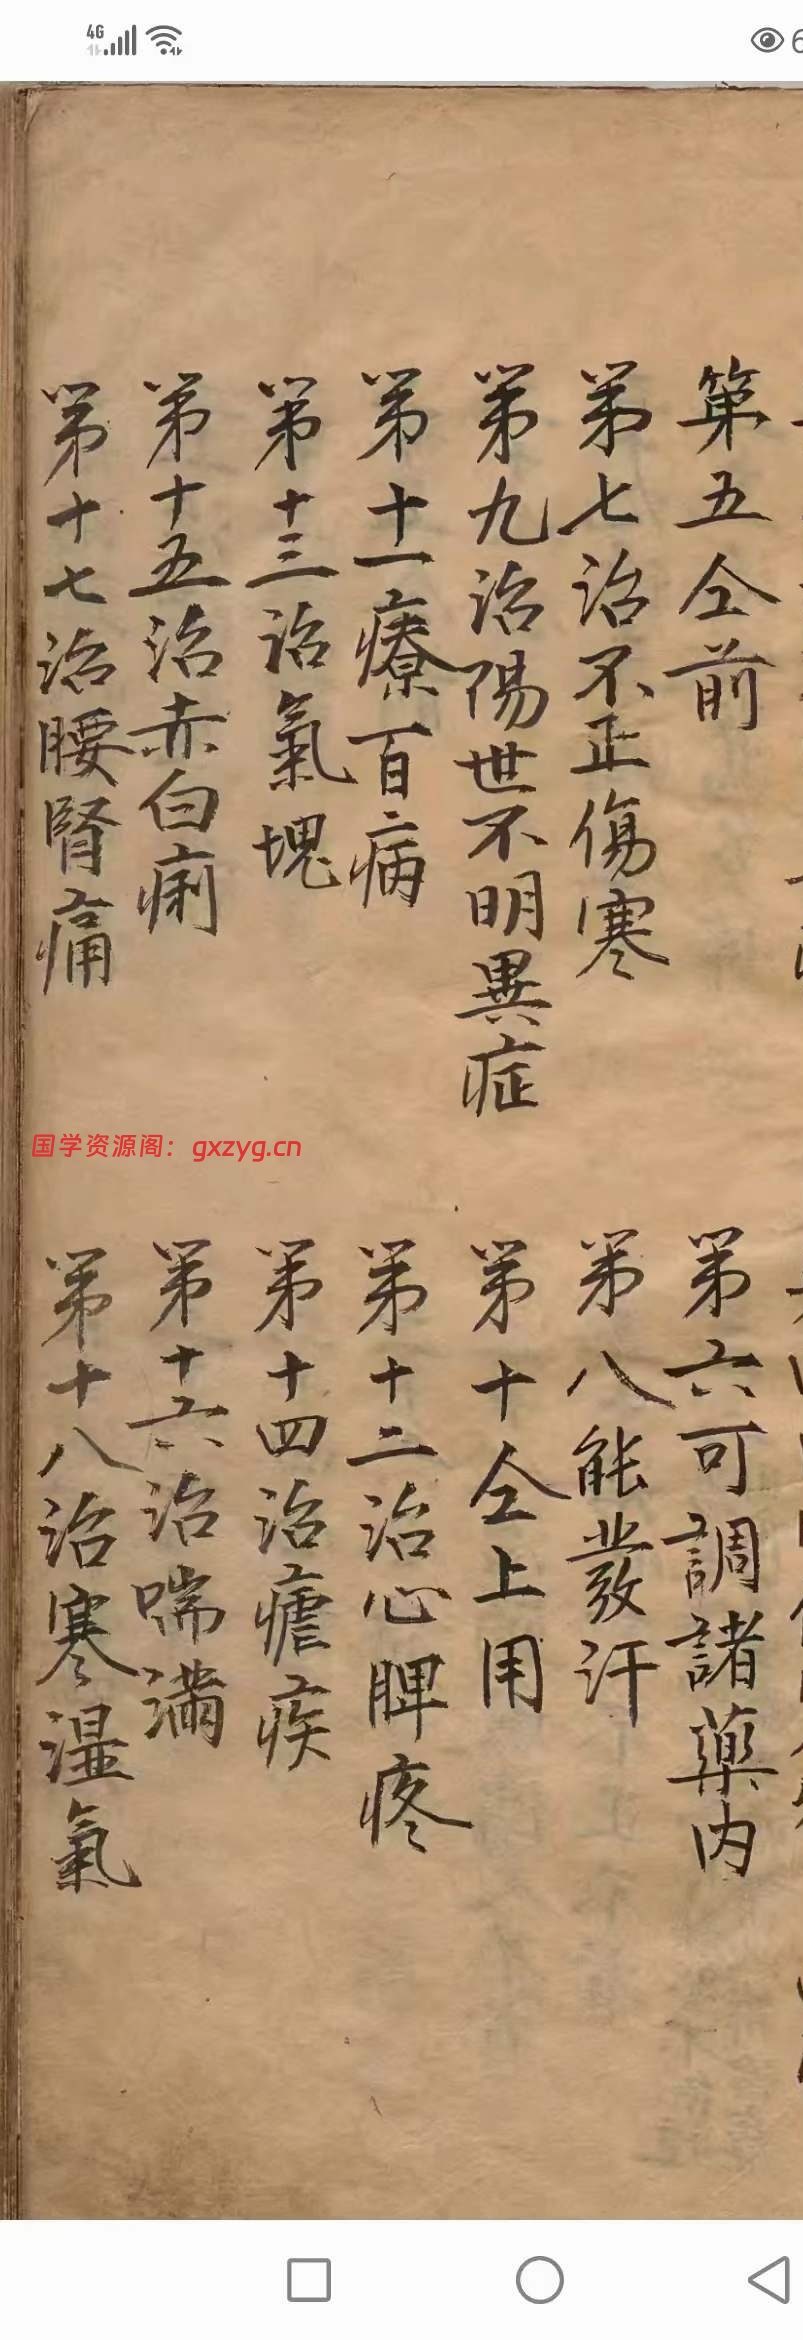 4G
6
第五仝前
第六可調諸藥内
第七治不正傷寒
第八能發汗
第九治陽世不明異症
第十仝上用
第十一療百病
第十二治心脾疼
第十三治氣塊
第十四治瘧疾
第十五治赤白痢
第十六治喘滿
第十七治腰腎痛
第十八治寒濕氣
国学资源阁：gxzyg.cn